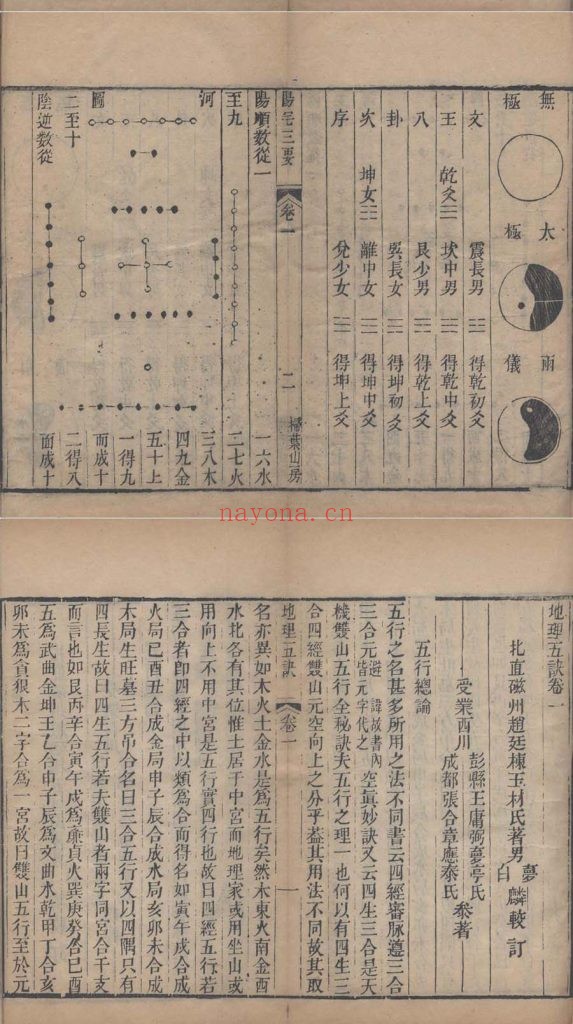 無極
太極
兩儀
文王八卦次序
乾爻☰
坤女☷
震長男☳得乾初爻
坎中男☵得乾中爻
艮少男☶得乾上爻
巽長女☴得坤初爻
離中女☲得坤中爻
兌少女☱得坤上爻
陽宅三要
卷一
二
掃葉山房
河圖
陽順數從一
至九
二至十
陰逆數從
一六水
二七火
三八木
四九金
五十土
一得九
而成十
二得八
而成十
nayona.cn
地理五訣卷一
北直磁州趙廷棟玉材氏著男夢白麟較訂
受業西川彭縣王庸弼夢亭氏
成都張合章應泰氏叅著
五行總論
五行之名甚多所用之法不同書云四經審脉遵三合
三合元避諱故書內皆元字代之空眞妙訣又云四生三合是天
機雙山五行全秘訣夫五行之理一也何以有四生三
合四經雙山元空向上之分乎葢其用法不同故其取
地理五訣
卷一
一
名亦異如木火土金水是爲五行矣然木東火南金西
水北各有其位惟土居于中宮而地理家或用坐山或
用向上不用中宮是五行實四行也故曰四經五行若
三合者卽四經之中以類爲合而得名如寅午戌合成
火局巳酉丑合成金局申子辰合成水局亥卯未合成
木局生旺墓三方吊合名曰三合五行又以四隅只有
四長生故曰四生五行若夫雙山者兩字同宮合干支
而言也如艮丙辛合寅午戌爲廉貞火巽庚癸合巳酉
丑爲武曲金坤壬乙合申子辰爲文曲水乾甲丁合亥
卯未爲貪狼木二字合爲一宮故曰雙山五行至於元